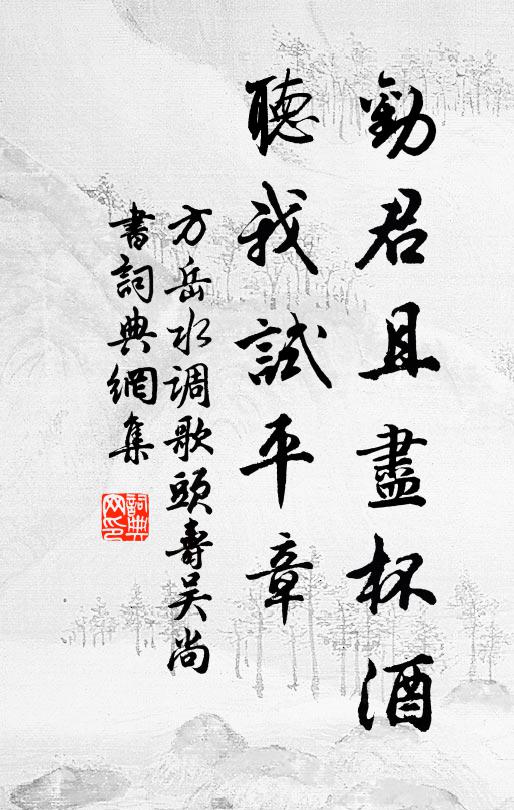 勸君且盡杯酒
聽我試平章
方岳水调歌頭壽吴尚
書詞典網集
詞典
网印